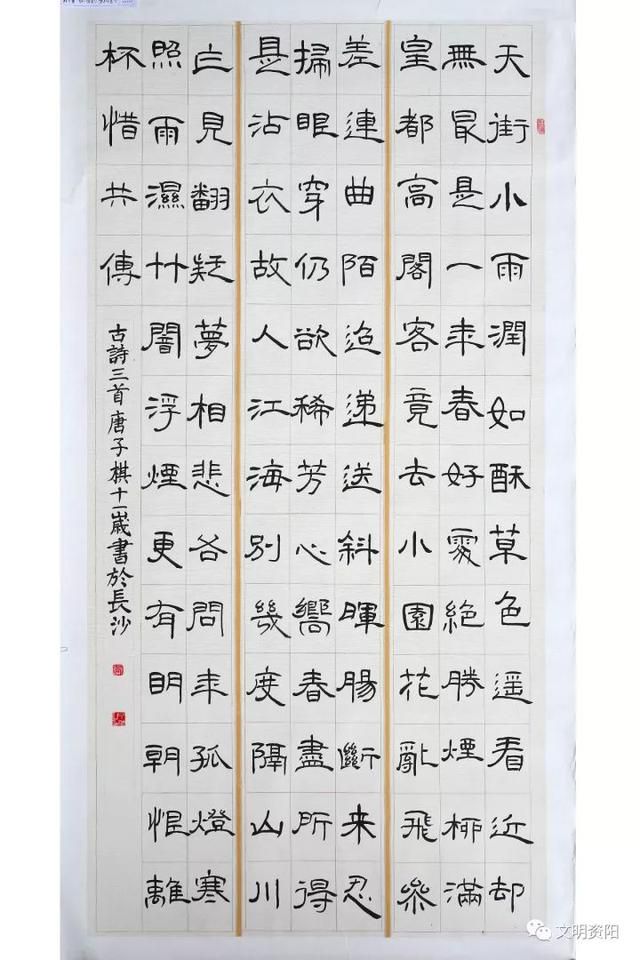 天街小雨潤如酥草色遥看近却
無最是一年春好處絶勝煙柳滿
皇都高閣客竟去小園花亂飛參
差連曲陌迢遞送斜暉腸斷来忍
掃眼穿仍欲稀芳心嚮春盡所得
是沾衣故人江海别幾度隔山川
乍見翻疑夢相悲各問年孤燈寒
照雨濕竹闇浮煙更有明朝恨離
杯惜共傳
古詩三首唐子棋十一歲書於長沙
文明资阳